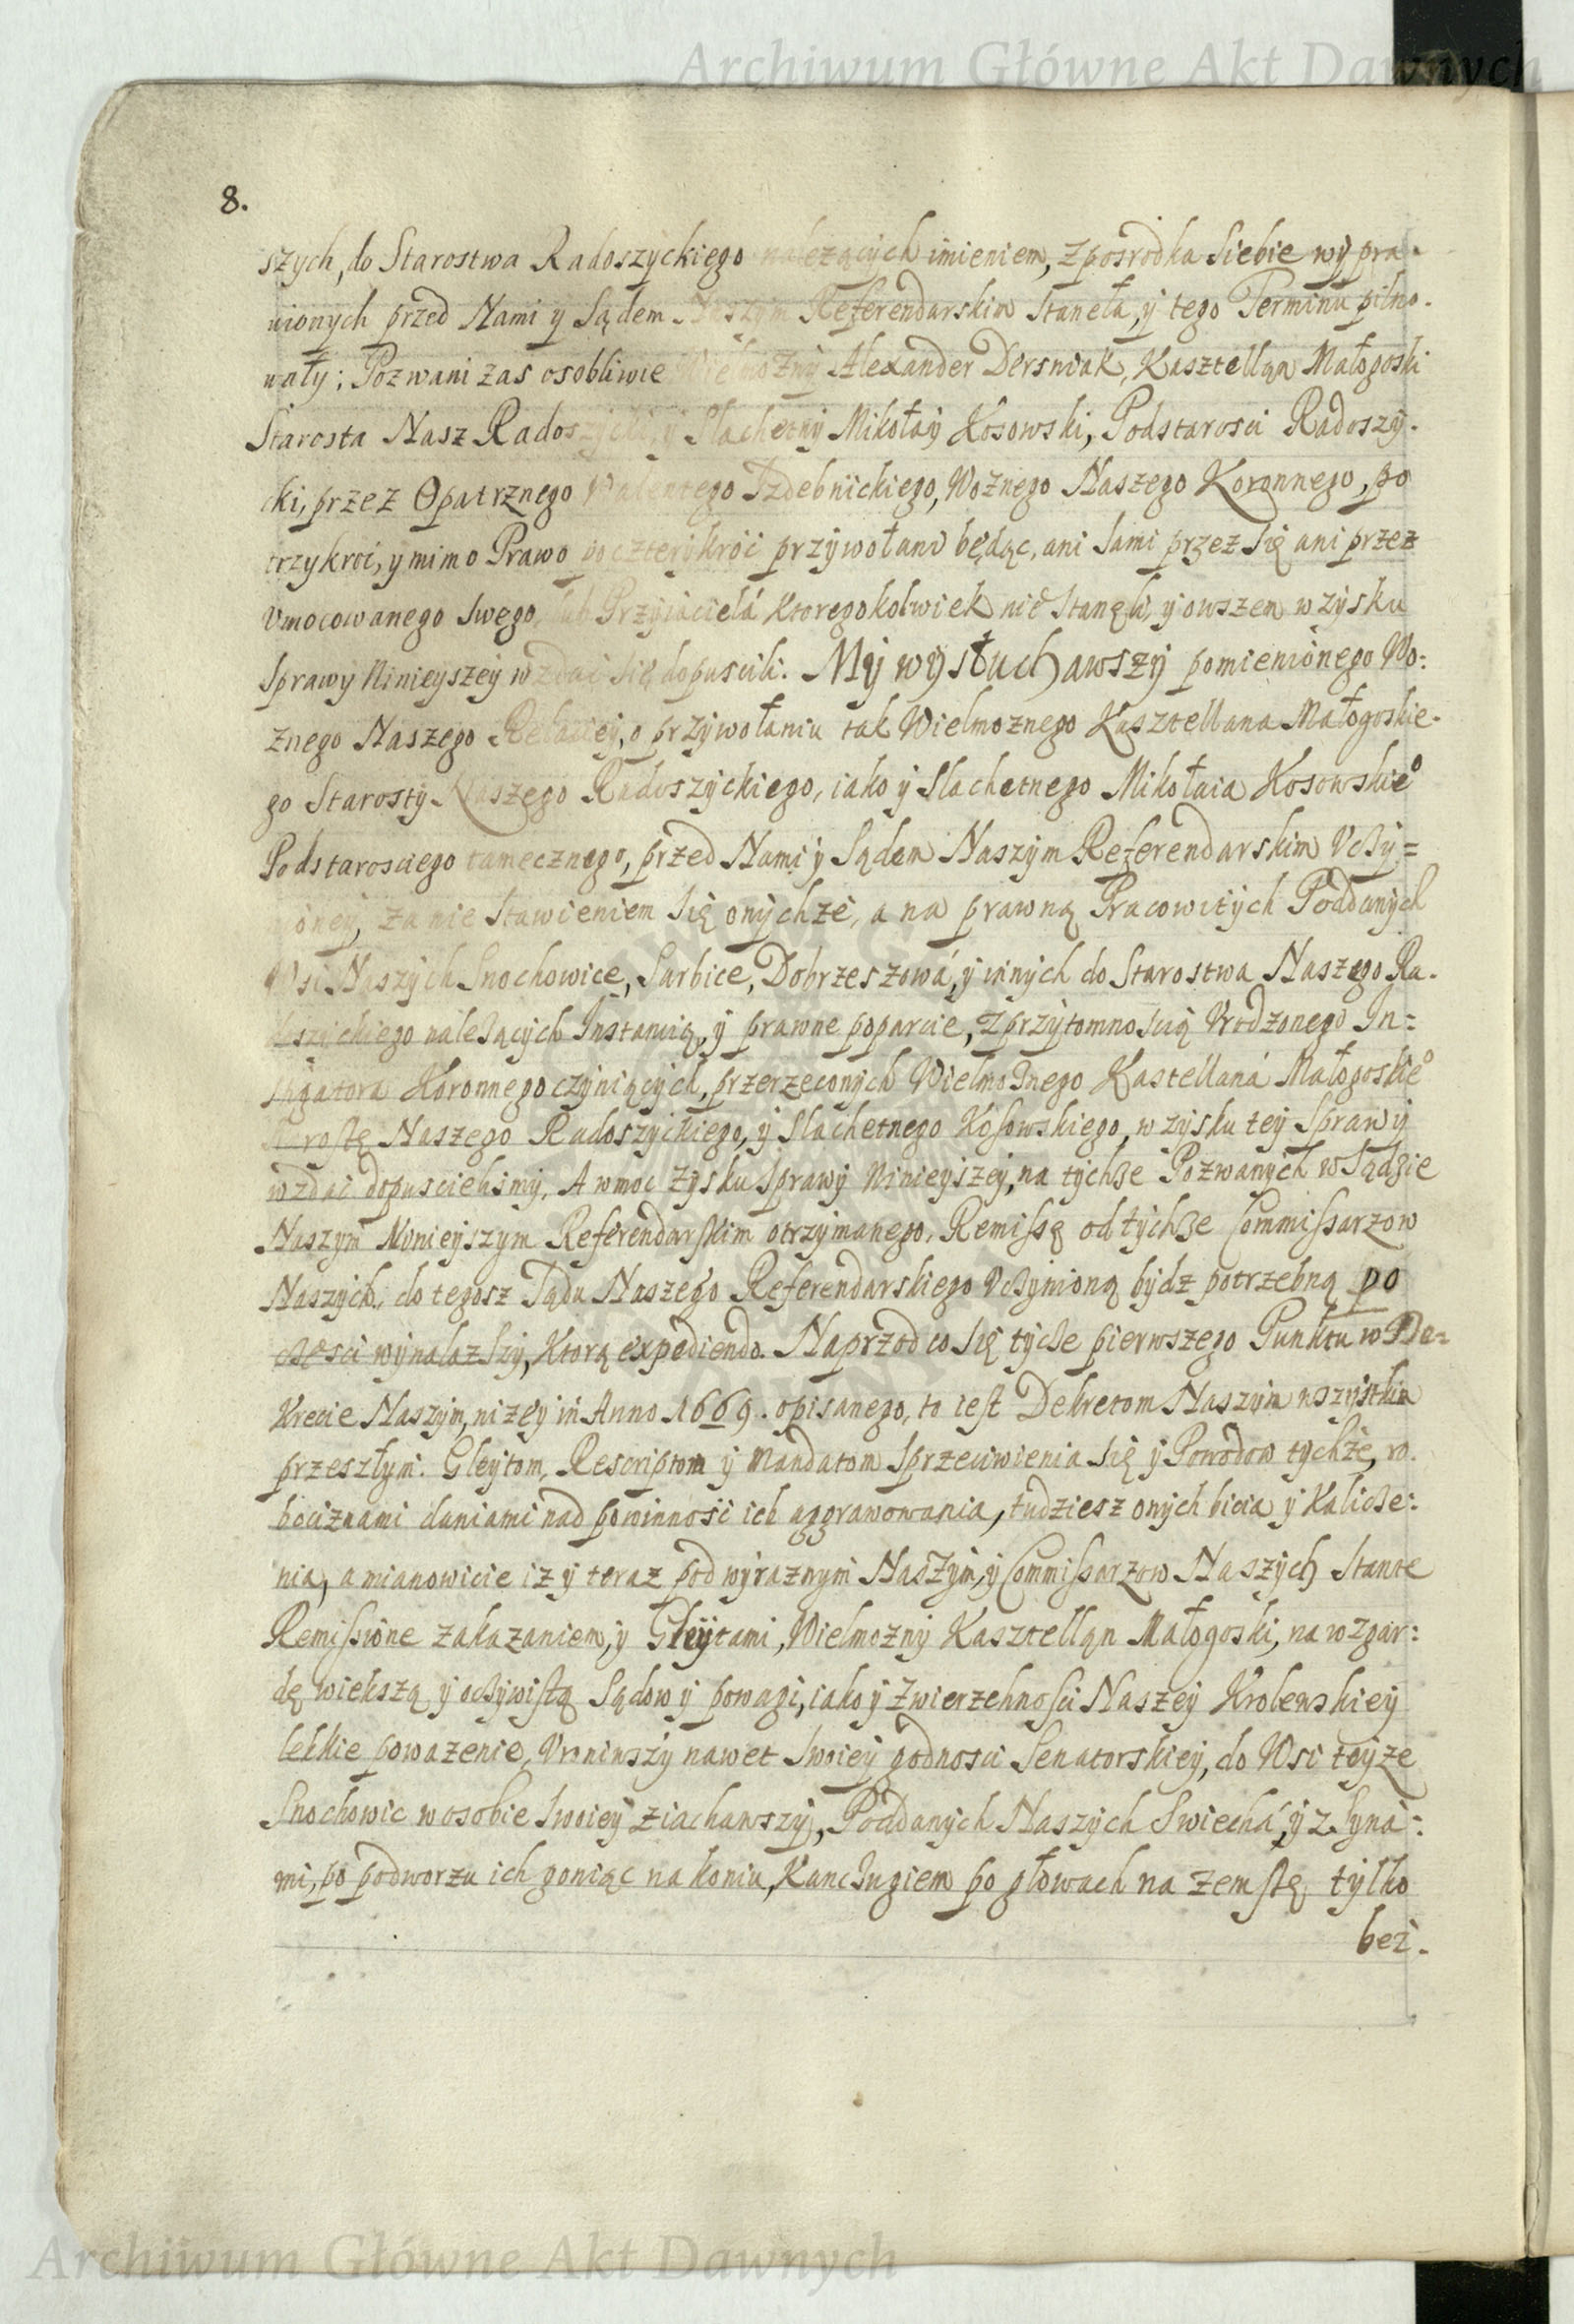 Archiwum Główne Akt Dawnych
8.
szych, do Starostwa Radoszyckiego nalezących imieniem, z posrodka siebie wypra-
wionych przed Nami y Sądem Naszym Referendarskim Staneła, y tego Terminu pilno-
wały; Pozwani zas osobliwie Wielmozny Alexander Dersniak, Kasztellan Małogoski
Starosta Nasz Radoszycki, y Slachetny Mikołay Kosowski, Podstarosci Radoszy-
cki, przez Opatrznego Walentego Izdebnickiego, Woznego Naszego Koronnego, po
trzykroi, y mimo Prawo po czterykroi przywołani będąc, ani sami przez się ani przez
Vmocowanego swego, lub Przyiacielá ktoregokolwiek nie stanęli, y owszem w zysku
Sprawy Ninieyszey wzdai się dopuscili. My wysłuchawszy pomienionego Wo:
znego Naszego Relatiey, o przywołaniu tak Wielmoznego Kasztellana Małogoskie-
go Starosty Naszego Radoszyckiego, iako y Slachetnego Mikołaia Kosowskie°
Podstarosciego tamecznego, przed Nami y Sądem Naszym Referendarskim Vczy=
nioney, za nie stawieniem się onychze, a na prawną Pracowitych Poddanych
Wsi Naszych Snochowice, Sarbice, Dobrzeszowá, y innych do Starostwa Naszego Ra-
doszyckiego nalezących Instantią, y prawne poparcie, z przytomnoscią Vrodzonego In=
stigatora Koronnego czyniących, przerzeconych Wielmoznego Kastellaná Małogoskie°
Starostę Naszego Radoszyckiego, y Slachetnego Kosowskiego, w zysku tey Sprawy
wzdai dopuscielismy, A w moc zysku sprawy Ninieyszey, na tychze Pozwanych w Sądzie
Naszym Ninieyszym Referendarskim otrzymanego, Remissę od tychze Commissarzow
Naszych, do tegosz Sądu Naszego Referendarskiego Vczynioną bydz potrzebną po
częsci wynalazszy, ktorą expediendo. Naprzod co się tycze pierwszego Punktu w De=
krecie Naszym, nizey in Anno 1669. opisanego, to iest Dekretom Naszym wszystkim
przeszłym. Gleytom, Rescriptom y Mandatom sprzeciwienia się y Powodow tychze, ro.
bociznami daniami nad powinnosci ich aggrawowania, tudziesz onych bicia y kalicze:
nia, a mianowicie iz y teraz pod wyraznym Naszym, y Commissarzow Naszych stante
Remissione zakazaniem, y Gleytami, Wielmozny Kasztellan Małogoski, na wzgar:
dę większą y oczywistą Sądow y powagi, iako y Zwierzchnosci Naszey Krolewskiey
lekkie powazenie, Vniniwszy nawet swoiey godnosci Senatorskiey, do Wsi teyze
Snochowic w osobie swoiey ziachawszy, Poddanych Naszych Swiechá, y z Syna:
mi, po podworzu ich goniąc na koniu, Kanczugiem po głowach na zemstę tylko
bez.
Archiwum Główne Akt Dawnych